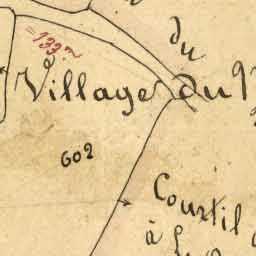 du
=133.m
Village du
602
Courtil
à